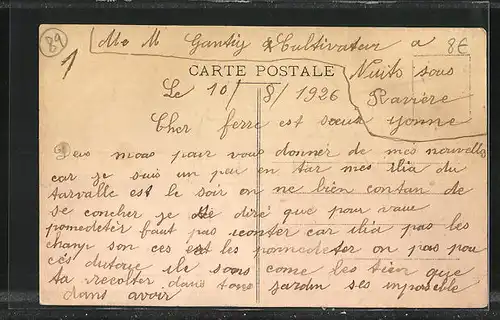 89
8E
Mr M Gantiy Cultivateur a
CARTE POSTALE
Nuits sous
Le 10/8/1926
Ravière
Cher ferre est sœux
Yonne
Deus moas pour vous donner de mes nouvelles
car je suis un peu en tar mes ilia du
tarvalle est le soir on ne bien contan de
se concher je dire que pour vaue
pomedetèr faut pas conter car ilia pas les
champ son ces est les pomedeter on pas pou
cés dutoue ile sons come les tier que
ta recolter dans tons jardin ses imposible
dans avoir